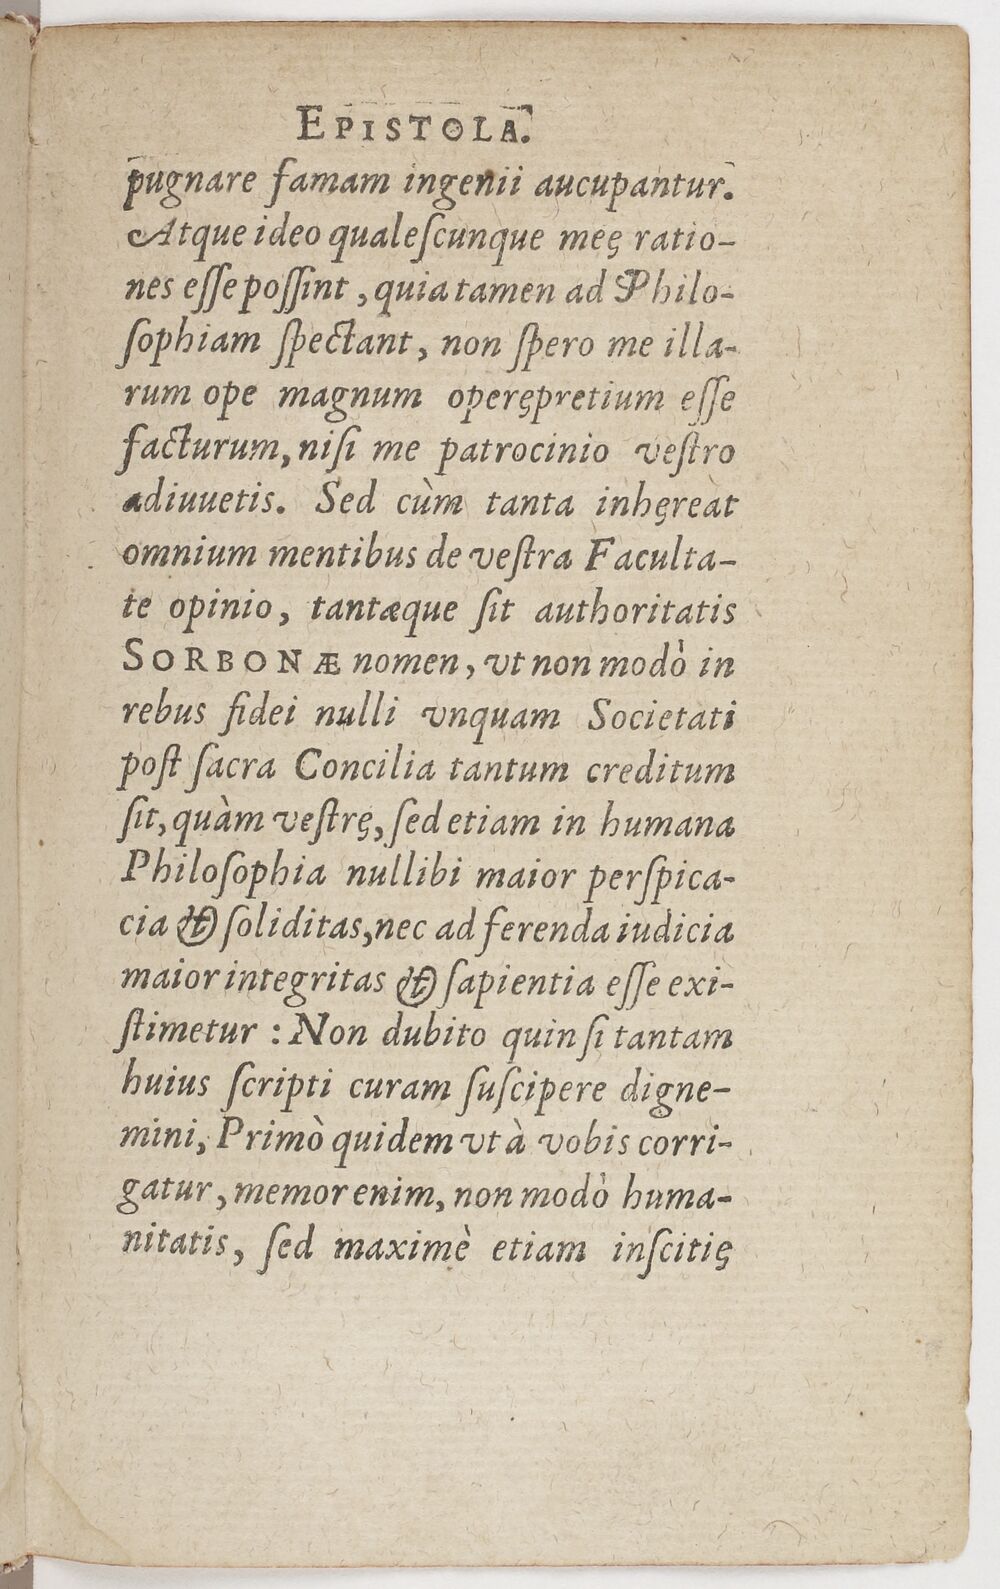 EPISTOLA.
pugnare famam ingenii aucupantur.
Atque ideo qualeſcunque meę ratio-
nes eſſe poſſint, quia tamen ad Philo-
ſophiam ſpectant, non ſpero me illa-
rum ope magnum operępretium eſſe
facturum, niſi me patrocinio veſtro
adiuuetis. Sed cùm tanta inhęreat
omnium mentibus de veſtra Faculta-
te opinio, tantæque ſit authoritatis
SORBONÆ nomen, vt non modò in
rebus fidei nulli vnquam Societati
poſt ſacra Concilia tantum creditum
ſit, quàm veſtrę, ſed etiam in humana
Philoſophia nullibi maior perſpica-
cia & ſoliditas, nec ad ferenda iudicia
maior integritas & ſapientia eſſe exi-
ſtimetur : Non dubito quin ſi tantam
huius ſcripti curam ſuſcipere digne-
mini, Primò quidem vt à vobis corri-
gatur, memor enim, non modò huma-
nitatis, ſed maximè etiam inſcitię